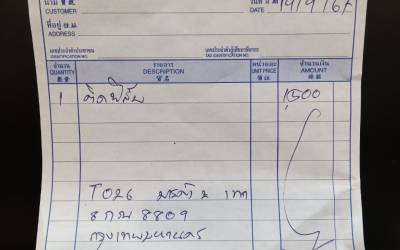 นาม
CUSTOMER
วันที่
DATE 19/9/67
ที่อยู่
ADDRESS
เลขประจำตัวประชาชน
เลขประจำตัวผู้เสียภาษีอากร
TAX IDENTIFICATION NO.
จำนวน รายการ หน่วยละ จำนวนเงิน
QUANTITY DESCRIPTION UNIT PRICE AMOUNT
數量 貨名 價目 銀碼
1 ติดฟิล์ม 1,500
TO26 เทา
8 กณ 8809
กรุงเทพมหานคร